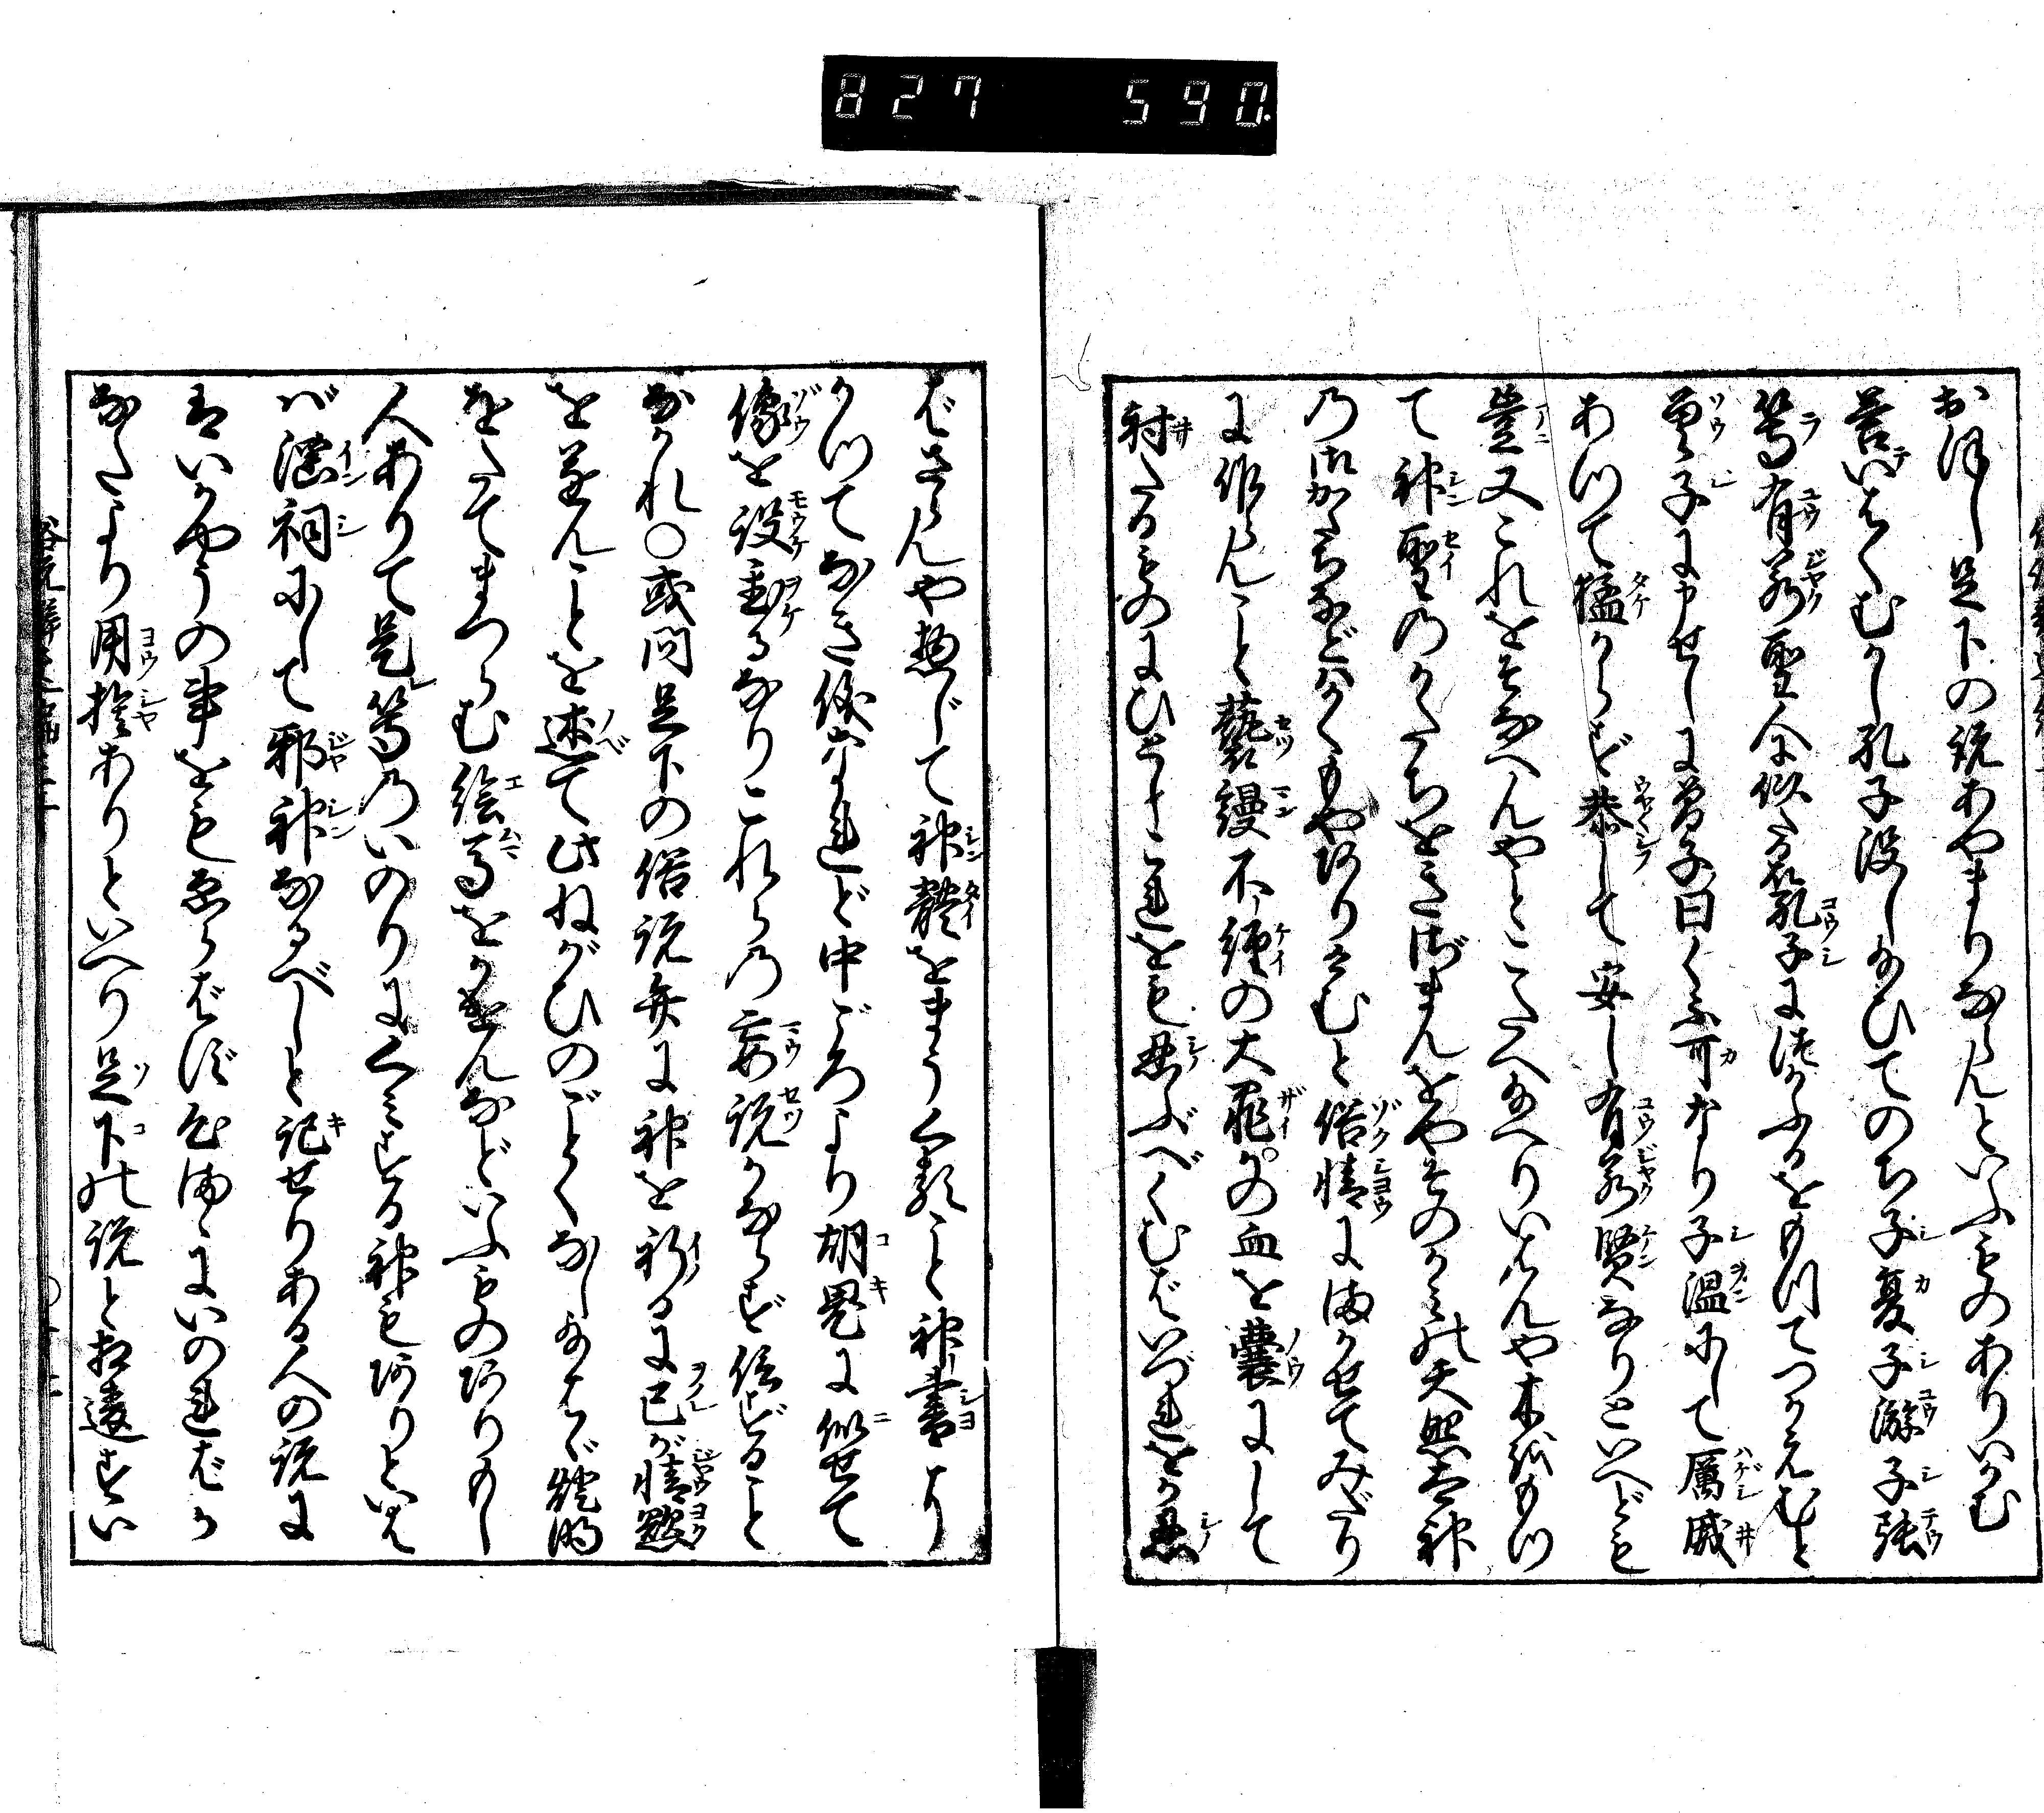 827 590.
おほし足下の説あやまりならんといふものありいかむ
答いはくむかし孔子没し給ひてのち子夏子游子張
等有若聖人に似たる孔子につかふるをもつてつかえむと
曽子に申せしに曽子曰く不可なり子温にして厲威
あつて猛からず恭して安し有若賢なりといへども
豈又これをそなへんやとこたへ給へりいはんや木紙もつ
て神聖のかたちをきざまんをやそのかみ天照太神
の御かたちなどはかくもやありけむと俗情にまかせてみだり
に作らんこと褻謾不経の大罪かの血を嚢にして
射たるものにひとしこれをも忍ぶべくむばいづれをか忍
ばざらんや惣じて神體をまうくること神書より
かつてなき儀なれど中ごろより胡鬼に似せて
像を設置るなりこれらの妄説かならず信ずること
なかれ○或問足下の俗説弁に神を祈るに己が情慾
を遂んことを述てひねがひのごとくなし給はゞ
をたてまつらむ絵馬をかけんなどいふものありもし
人ありて是等のいのりにくみする神もありといはゞ
バ淫祠にして邪神なるべしと記せりある人の説に
はいかやうの事をもゑらばず心まかにいのればか
なたより用捨ありといへり足下の説と相違せり